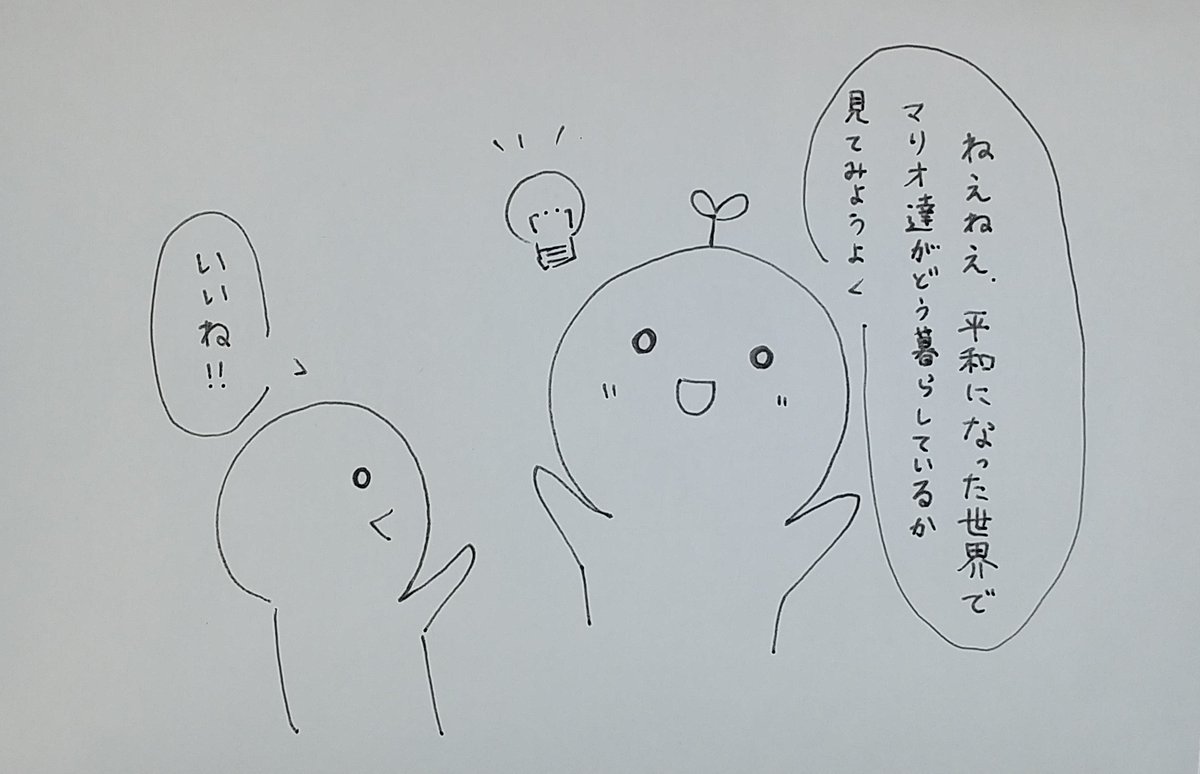 ねえねえ、平和になった世界で
マリオ達がどう暮らしているか
見てみようよ
いいね!!